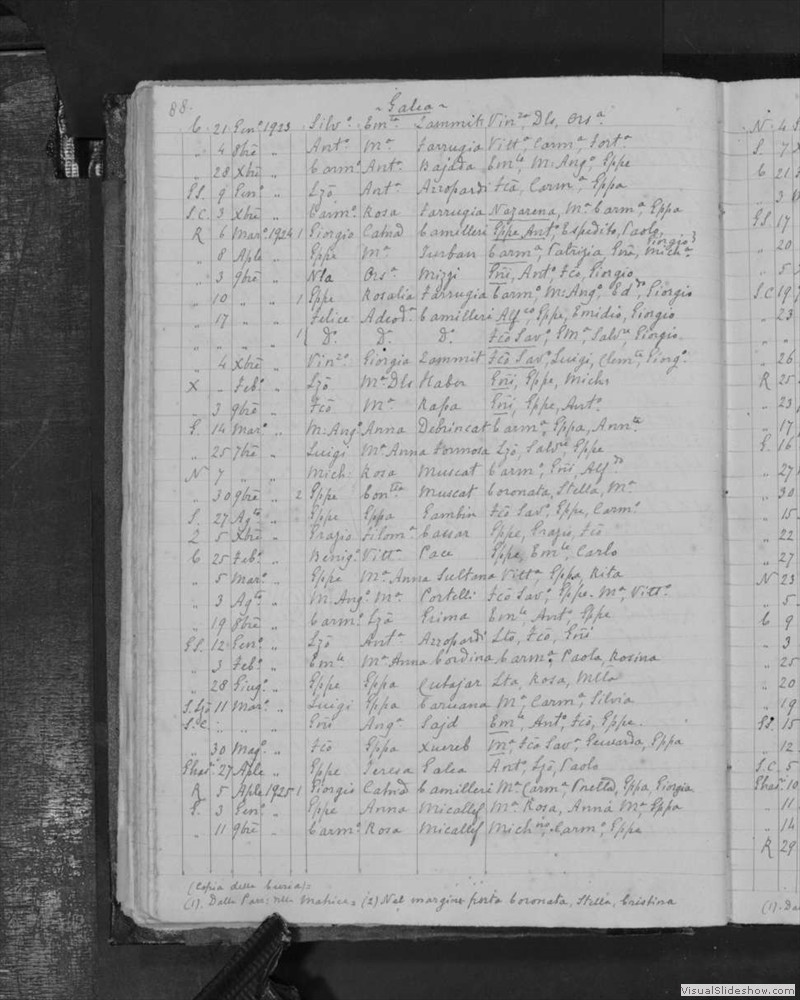 88. ~ Galea ~
C 21 Genº 1923 Silvº Emla Zammit Vinza, Dls, Orsa
„ 4 8bre „ Antº Mª Farrugia Vittª, Carmª, Fortª
„ 28 Xbre „ Carmº Antª Bajada Emle, M: Angº, Gppe
GS. 9 Genº „ Lzo Antª Azzopardi Fco, Carmª, Gppa
S.C. 3 Xbre „ Carmº Rosa Farrugia Nazarena, Mª Carmª, Gppa
R 6 Marº 1924 1 Giorgio Catnd Camilleri Gppe, Antº Espedito, Paolo, Giorgio}
„ 8 Aple „ Gppe Mª Zurban Carmª, Patrizia, Gni, Michª
„ 3 9bre „ 1 Nla Orsª Mizzi Gni, Antº, Fco, Giorgio
„ 10 „ „ 1 Gppe Rosalia Farrugia Carmº, M: Angº, Eddo, Giorgio
„ 17 „ „ Felice Adeodª Camilleri Alfdo, Gppe, Emidio, Giorgio
„ „ „ „ 1 Dº Dº Dº Fco Savº, Gmª, Salvre, Giorgio
„ 4 Xbre „ Vinzº Giorgia Zammit Fco Sav, Luigi, Clemte, Giorgº
X „ Febº „ Lzo Mª Dls Haber Gni, Gppe, Michs
„ 3 9bre „ Fco Mª Rapa Gni, Gppe, Antº
G. 14 Marº „ M: Angº Anna Debrincat Carmª, Gppa, Annta
„ 25 7bre „ Luigi Mª Anna Formosa Lzo, Salvre, Gppe
N 7 „ „ Mich: Rosa Muscat Carmº, Gni, Alfdo
„ 30 9bre „ 2 Gppe Conttta Muscat Coronata, Stella, Mª
S. 27 Agto „ Gppe Gppa Gambin Fco Savº, Gppe, Carmº
Z 5 Xbre „ Grazio Filomª Cassar Gppe, Grazio, Fco
C 25 Febº „ Benigº Vittª Pace Gppe, Emle, Carlo
„ 5 Marº „ Gppe Mª Anna Sultana Vittª, Gppa, Rita
„ 3 Agto „ M: Angº Mª Portelli Fco Savº, Gppe Mª, Vittº
„ 19 8bre „ Carmº Lzo Grima Emle, Antº, Gppe
GS. 12 Genº „ Lzo Antª Azzopardi Lto, Fco, Gni
„ 3 Febº „ Emle Mª Anna Cordina Carmª, Paola, Rosina
„ 28 Giugº „ Gppe Gppa Cutajar Lta, Rosa, Mlla
S.Lzo 11 Marº „ Luigi Gppa Caruana Mª, Carmª, Silvia
S.C. „ „ „ Gni Angª Sajd Emle, Antº, Fco, Gppe
„ 30 Magº „ Fco Gppa Xuereb Mª, Fco Savª, Gppa
Ghasri 27 Aple „ Gppe Teresa Galea Antº, Lzo, Paolo
R 5 Aple 1925 1 Giorgio Catnd Camilleri Mª Carmª, Gppa, Giorgia
G. 3 Genº „ Gppe Anna Micallef Mª Rosa, Anna Mª, Gppa
„ 11 9bre „ Carmº Rosa Micallef Michno, Carmº, Gppe
(Copia della Curia)
(1). Dalla Parr: nella Matrice (2) Nel margine porta Coronata, Stella, Cristina
N 4
S 7
C 21
„ 3
GS. 17
„ 20
„ 5
S.C. 19
„ 23
„ „
„ 26
R 25
„ 23
„ 17
G. 16
„ 27
„ 30
„ 15
„ 22
„ 27
N 23
„ 5
C 9
„ 3
„ 25
„ 20
„ 19
GS. 15
„ 12
S.C. 5
Ghasri 10
„ 11
„ 14
R 29
(1). Da
VisualSlideshow.com